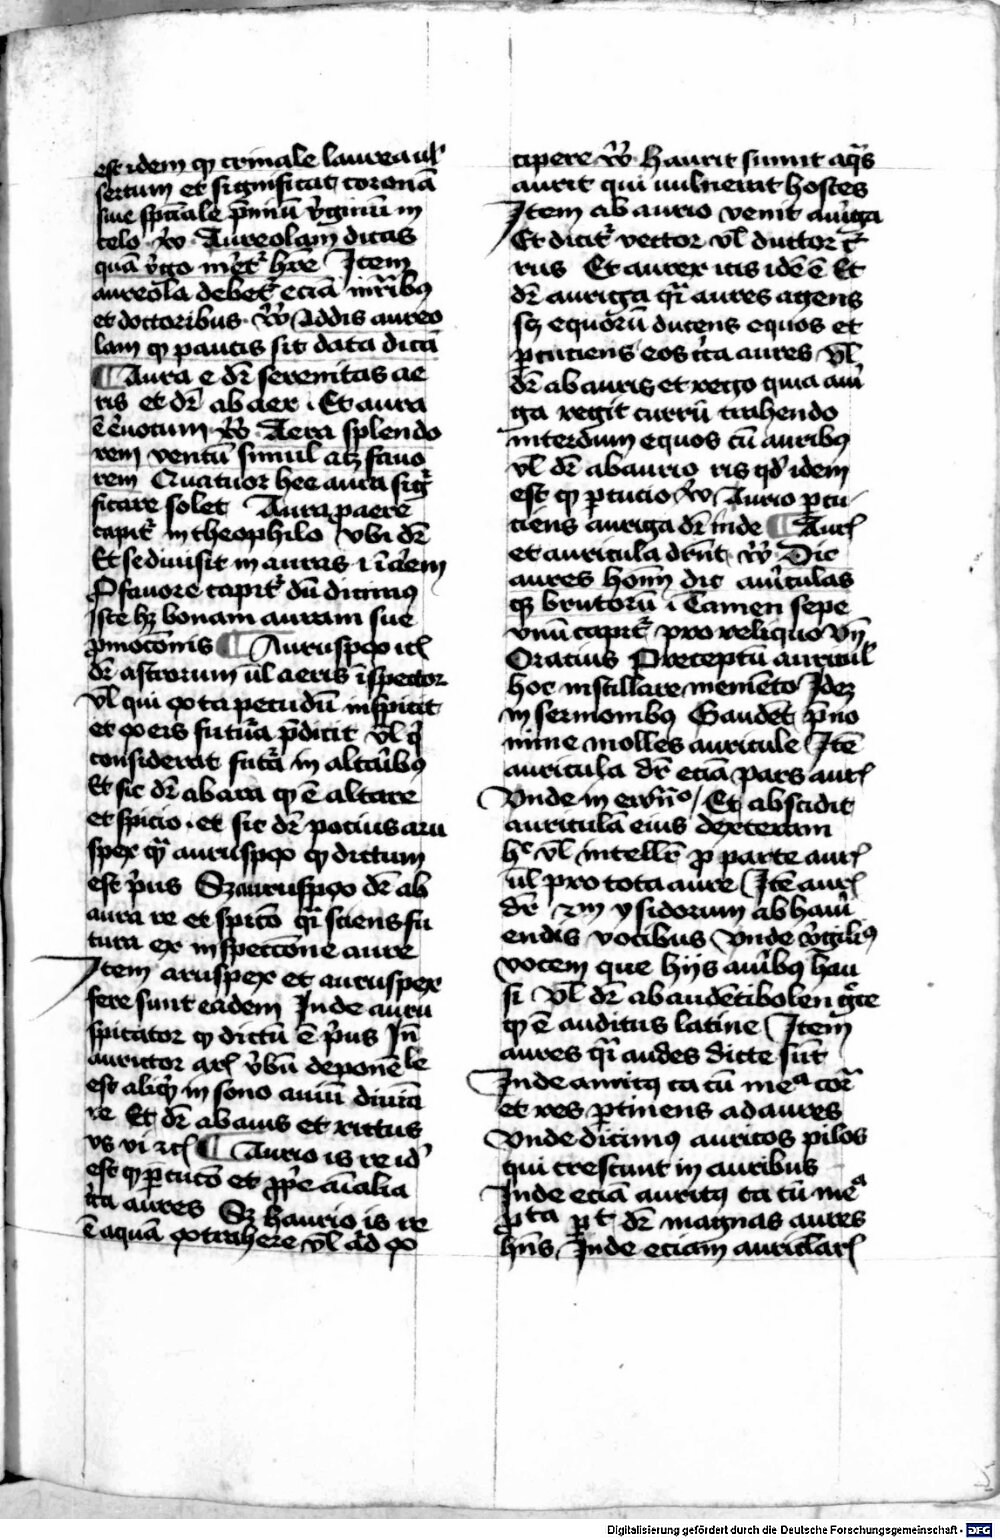 est idem qꝫ crinale laurea ul'
sertum et significat coronā
siue spāle p̄miū v̓ginū in
celo vn̄ Aureolam dicas
quā v̓go meret᷑ hr̄e Item
aureola debet᷑ eciā mr̄ibꝯ
et doctoribus vn̄ Addis aureo
lam qꝫ paucis sit data dicā
¶ Aura e dr̄ serenitas ae
ris et dr̄ ab aer · Et aura
vn̄ Aera splendo
rem ventū simul atqꝫ fauo
rem Quatuor hec aura sig̓
ficare solet Aura p aere
capit᷑ in theophilo vbi dr̄
Et se diuisit in auras
ꝓ fauore capit᷑ dū dicimꝯ
Iste hꝫ bonam auram sue
ꝓmocōnis ¶ Auruspex
dr̄ astrorum ul' aeris īspector
vl' qui exta pecudū inspicit
et ex eis futura p̄dicit vl' qͥ
considerat futa in altaribꝯ
Et sic dr̄ ab ara qꝫ ē altare
et spicio · et sic dr̄ pocius aru
spex qͣ auruspex qꝫ dictum
est p̓us Sꝫ auruspex dr̄ ab
aura re et spico qͣi sciens fu
tura ex inspeccōne aure
Item aruspex et auruspex
fere sunt eadem Inde auru
spicator qꝫ dictū ē p̓us In̄
auructor v̓bū deponēle
est aliqͥ in sono auiū diuia
re Et dr̄ ab auis et rictus
vs vi ¶ Aurio is re id̓
est qꝫ p̱cuto et ꝓp̓e aīalia
c̓ca aures Sꝫ haurio is re
ē aquā extrahere vl' ad ex
cipere vn̄ Haurit sumit aqͣs
aurit qui uulnerat hostes
Item ab aurio venit auriga
Et dicit᷑ vector vl' ductor cͬ
rus Et aurex icis idē ē Et
dr̄ auriga qͣi aures agens
sꝫ equorū ducens equos et
p̱cuciens eos c̓ca aures vl'
dr̄ ab auris et rego quia auri
ga regit currū trahendo
interdum equos cū auribꝯ
vl' dr̄ ab aurio ris qd' idem
est qꝫ p̱cucio vn̄ Aurio p̱cu
ciens auriga dr̄ inde ¶ Aur̄
et auricula drn̄t vn̄ Dic
aures hom̄ dic auriculas
qꝫ brutorū Tamen sepe
vnū capit᷑ pro reliquo vn̄
Oracius Preceptū auricul'
hoc instillare memēto Idez
in sermonibꝯ Gaudēt p̄no
mine molles auricule Itē
auricula dr̄ eciā pars aur̄
Vnde in ewn̄o Et abscidit
auriculā eius dexteram
hͦ vl' intelli ꝓ parte aur̄
ul' pro tota aure Itē aur̄
dr̄ ysidorum ab hauri
endis vocibus Vnde v̓giliꝯ
vocem que hiis auribꝯ hau
si vl' dr̄ ab audētibolen gͣce
qꝫ ē auditus latine Item
aures qͣi audes dicte sūt
Inde auritꝯ ta tū meͣ cor
et res p̱tinens ad aures
Vnde dicimꝯ auritos pilos
qui crescunt in auribus
Inde eciā auritꝯ ta tū meͣ
dr̄ magnas aures
hn̄s Inde eciam auriclar̄